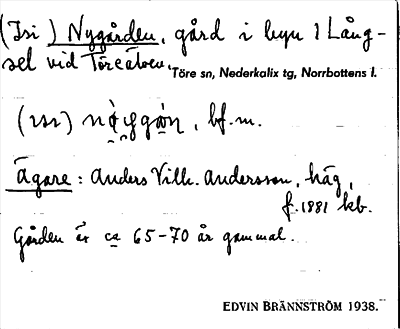 (Isi) Nygården, gård i byn 1 Lång-
sel vid Töreälven,
Töre sn, Nederkalix tg, Norrbottens l.
bf. m.
Ägare: Anders Vilh. Andersson, häg,
f. 1881 kb.
Gården är ca 65-70 år gammal.
EDVIN BRÄNNSTRÖM 1938.